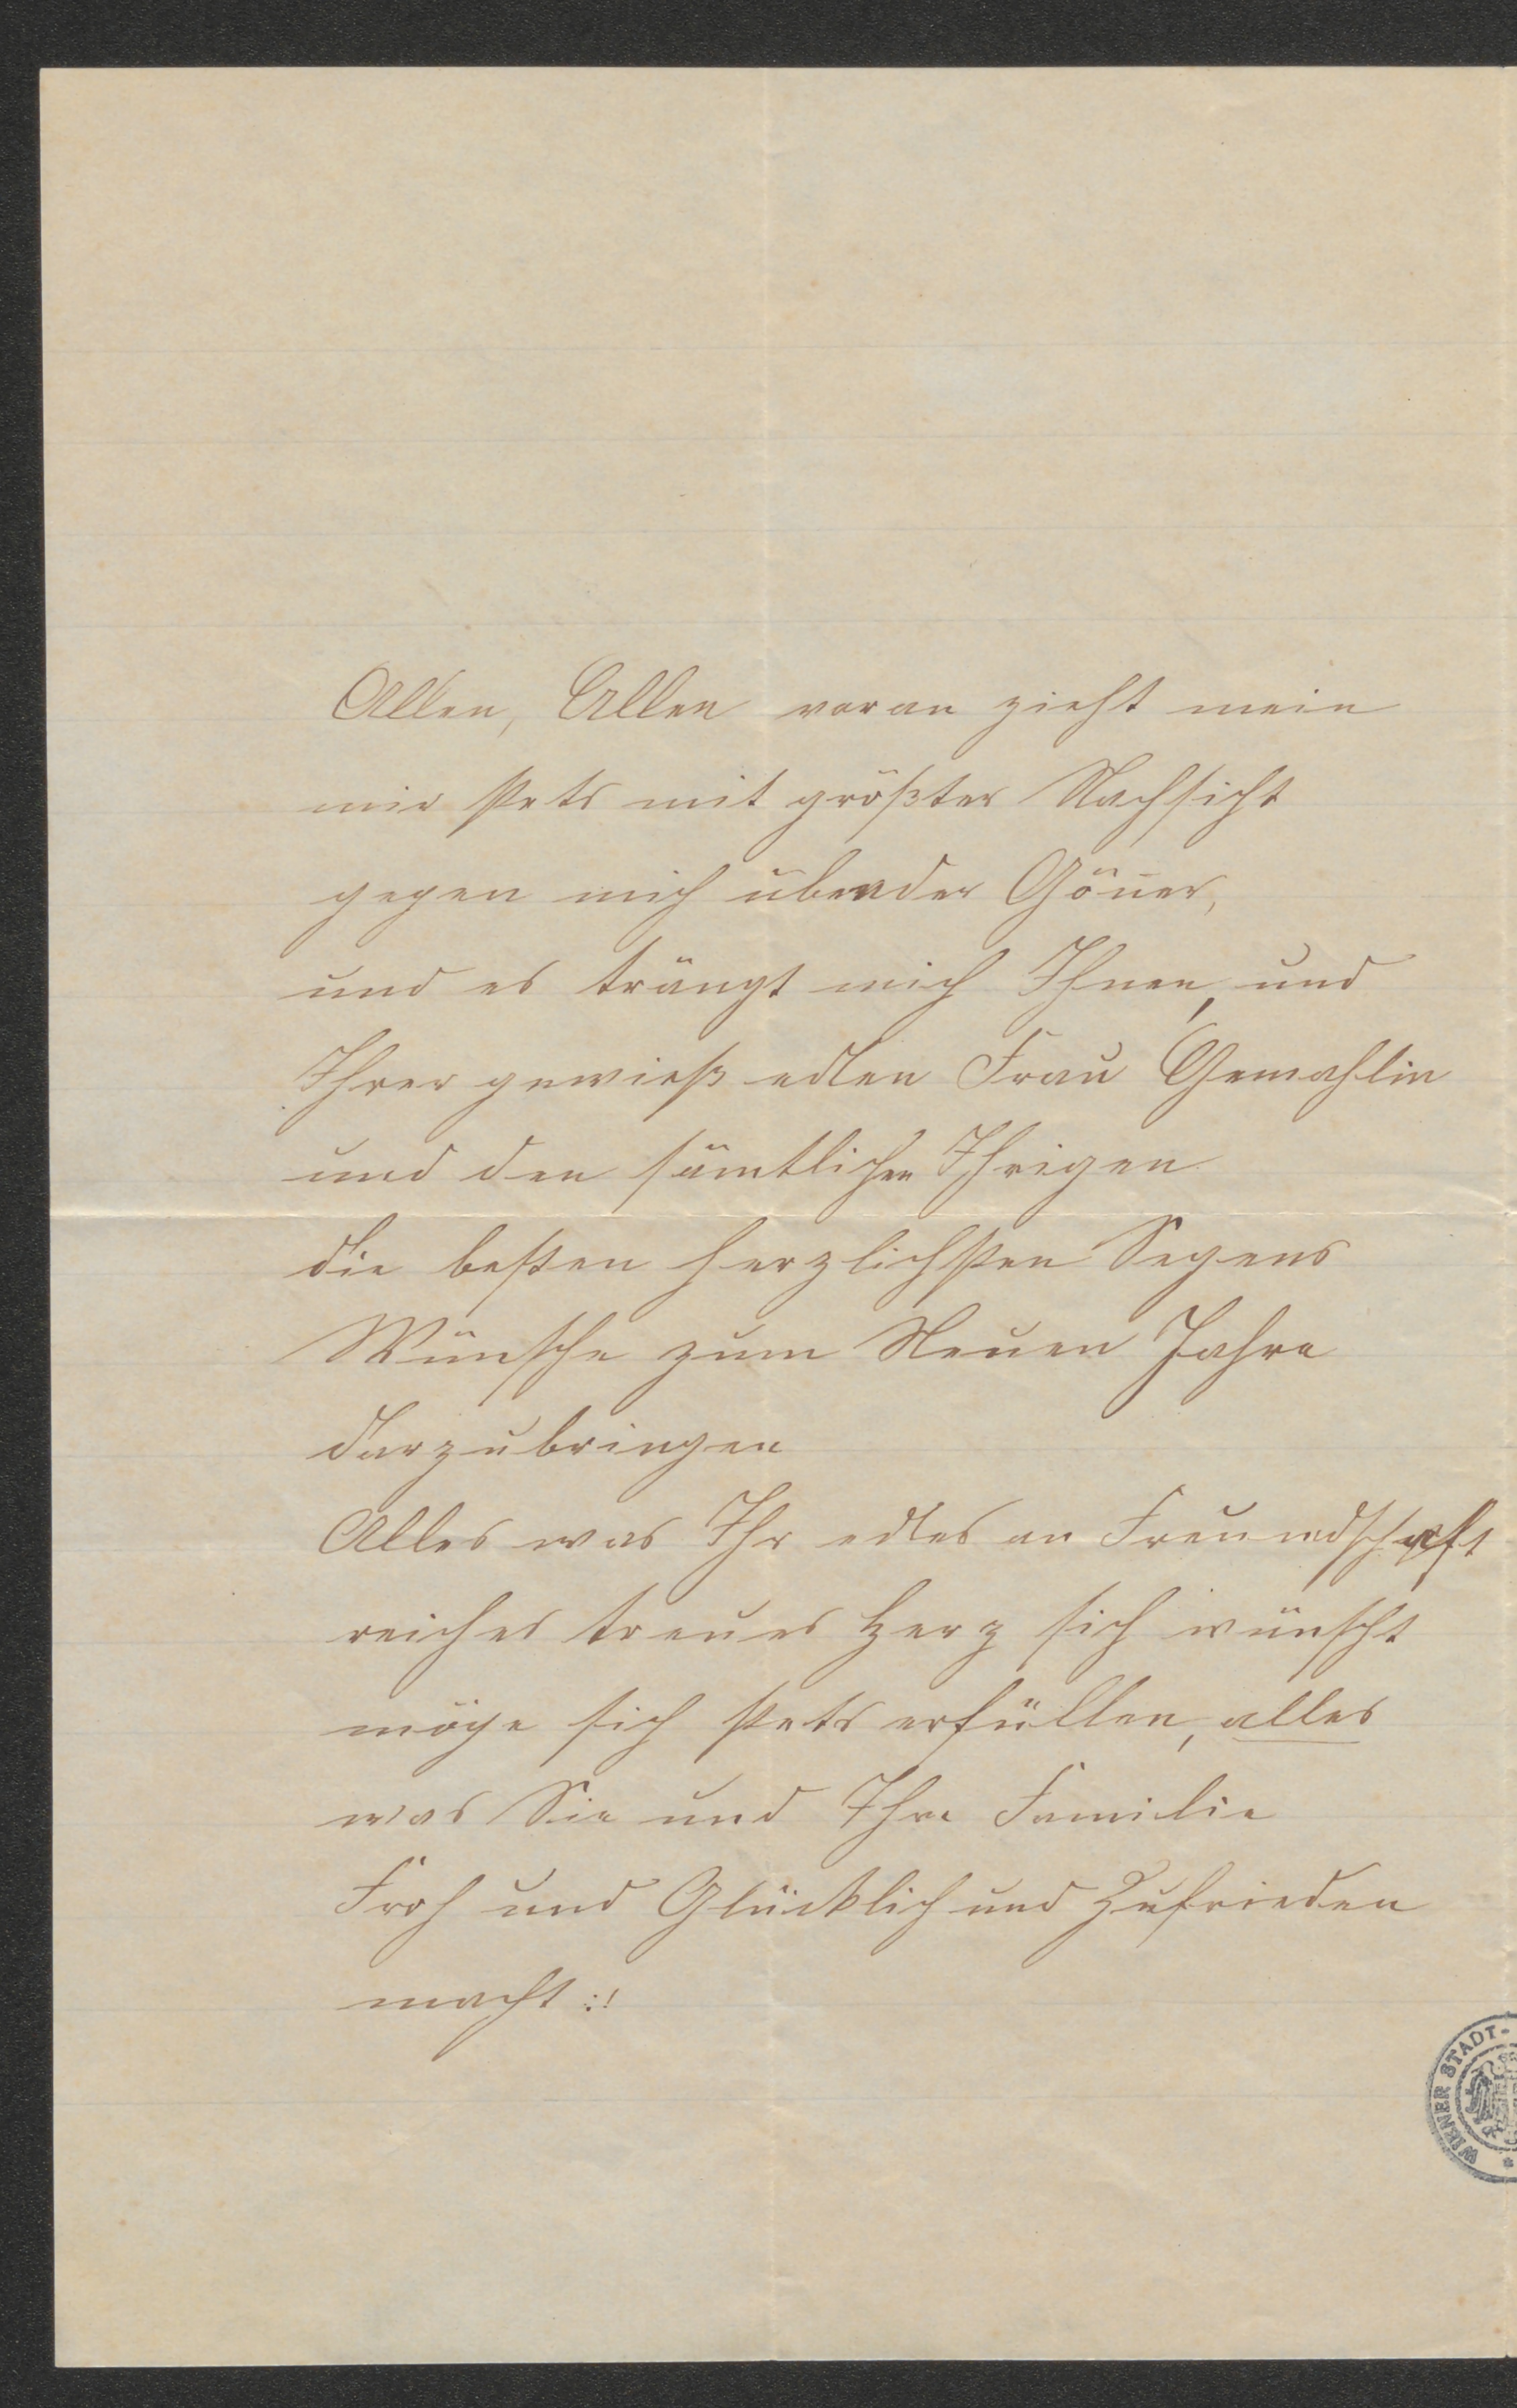 Allen, Allen voran zieht mein
mir stets mit größter Nachsicht
gegen mich übender Gön̄er,
und es trängt mich Ihnen, und
Ihrer gewieß edlen Frau Gemahlin
und den sämtlichen Ihrigen
die besten herzlichsten Segens
Wünsche zum Neuen Jahre
darzubringen
Alles was Ihr edles an Freundschaft
reiches treues Herz sich wünscht
möge sich stets erfüllen, alles
was Sie und Ihre Familie
Froh und Glücklich und Zufrieden
macht :!
WIENER STADT-